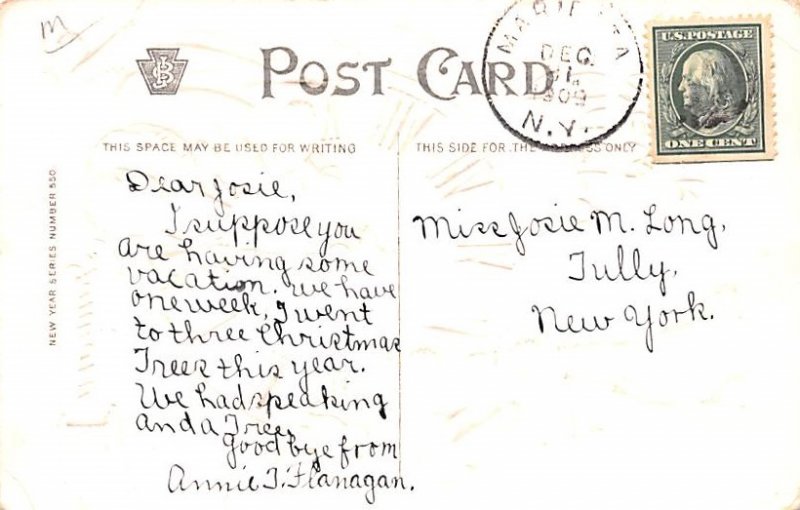 M
POST CARD
MARIETTA
DEC
1909
N.Y.
U.S. POSTAGE
ONE CENT
THIS SPACE MAY BE USED FOR WRITING
THIS SIDE FOR THE ADDRESS ONLY
NEW YEAR SERIES NUMBER 550
Dear Josie,
I suppose you
are having some
vacation. We have
one week, I went
to three Christmas
Trees this year.
We had speaking
and a Tree.
Good bye from
Annie T. Flanagan.
Miss Josie M. Long,
Tully,
New York.